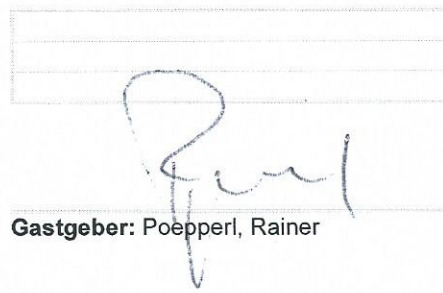 Gastgeber: Poepperl, Rainer